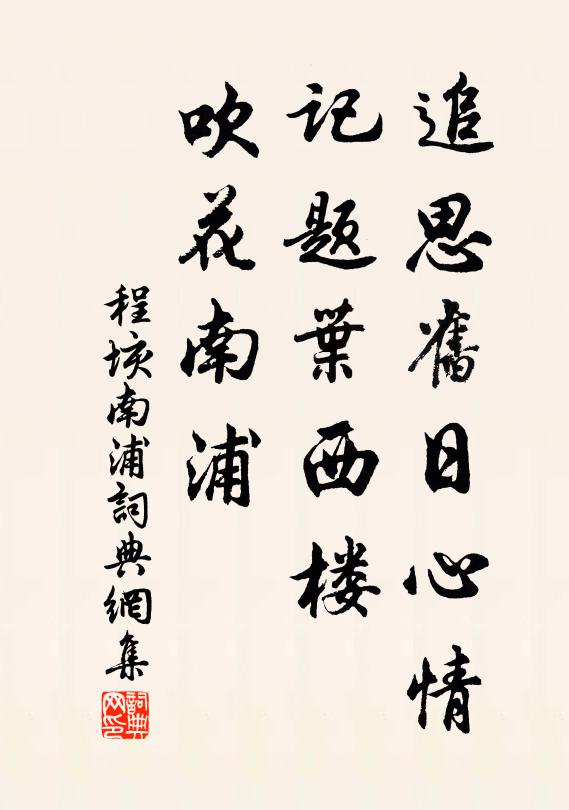 追思舊日心情
记题葉西楼
吹花南浦
程垓南浦詞典網集
詞典网印